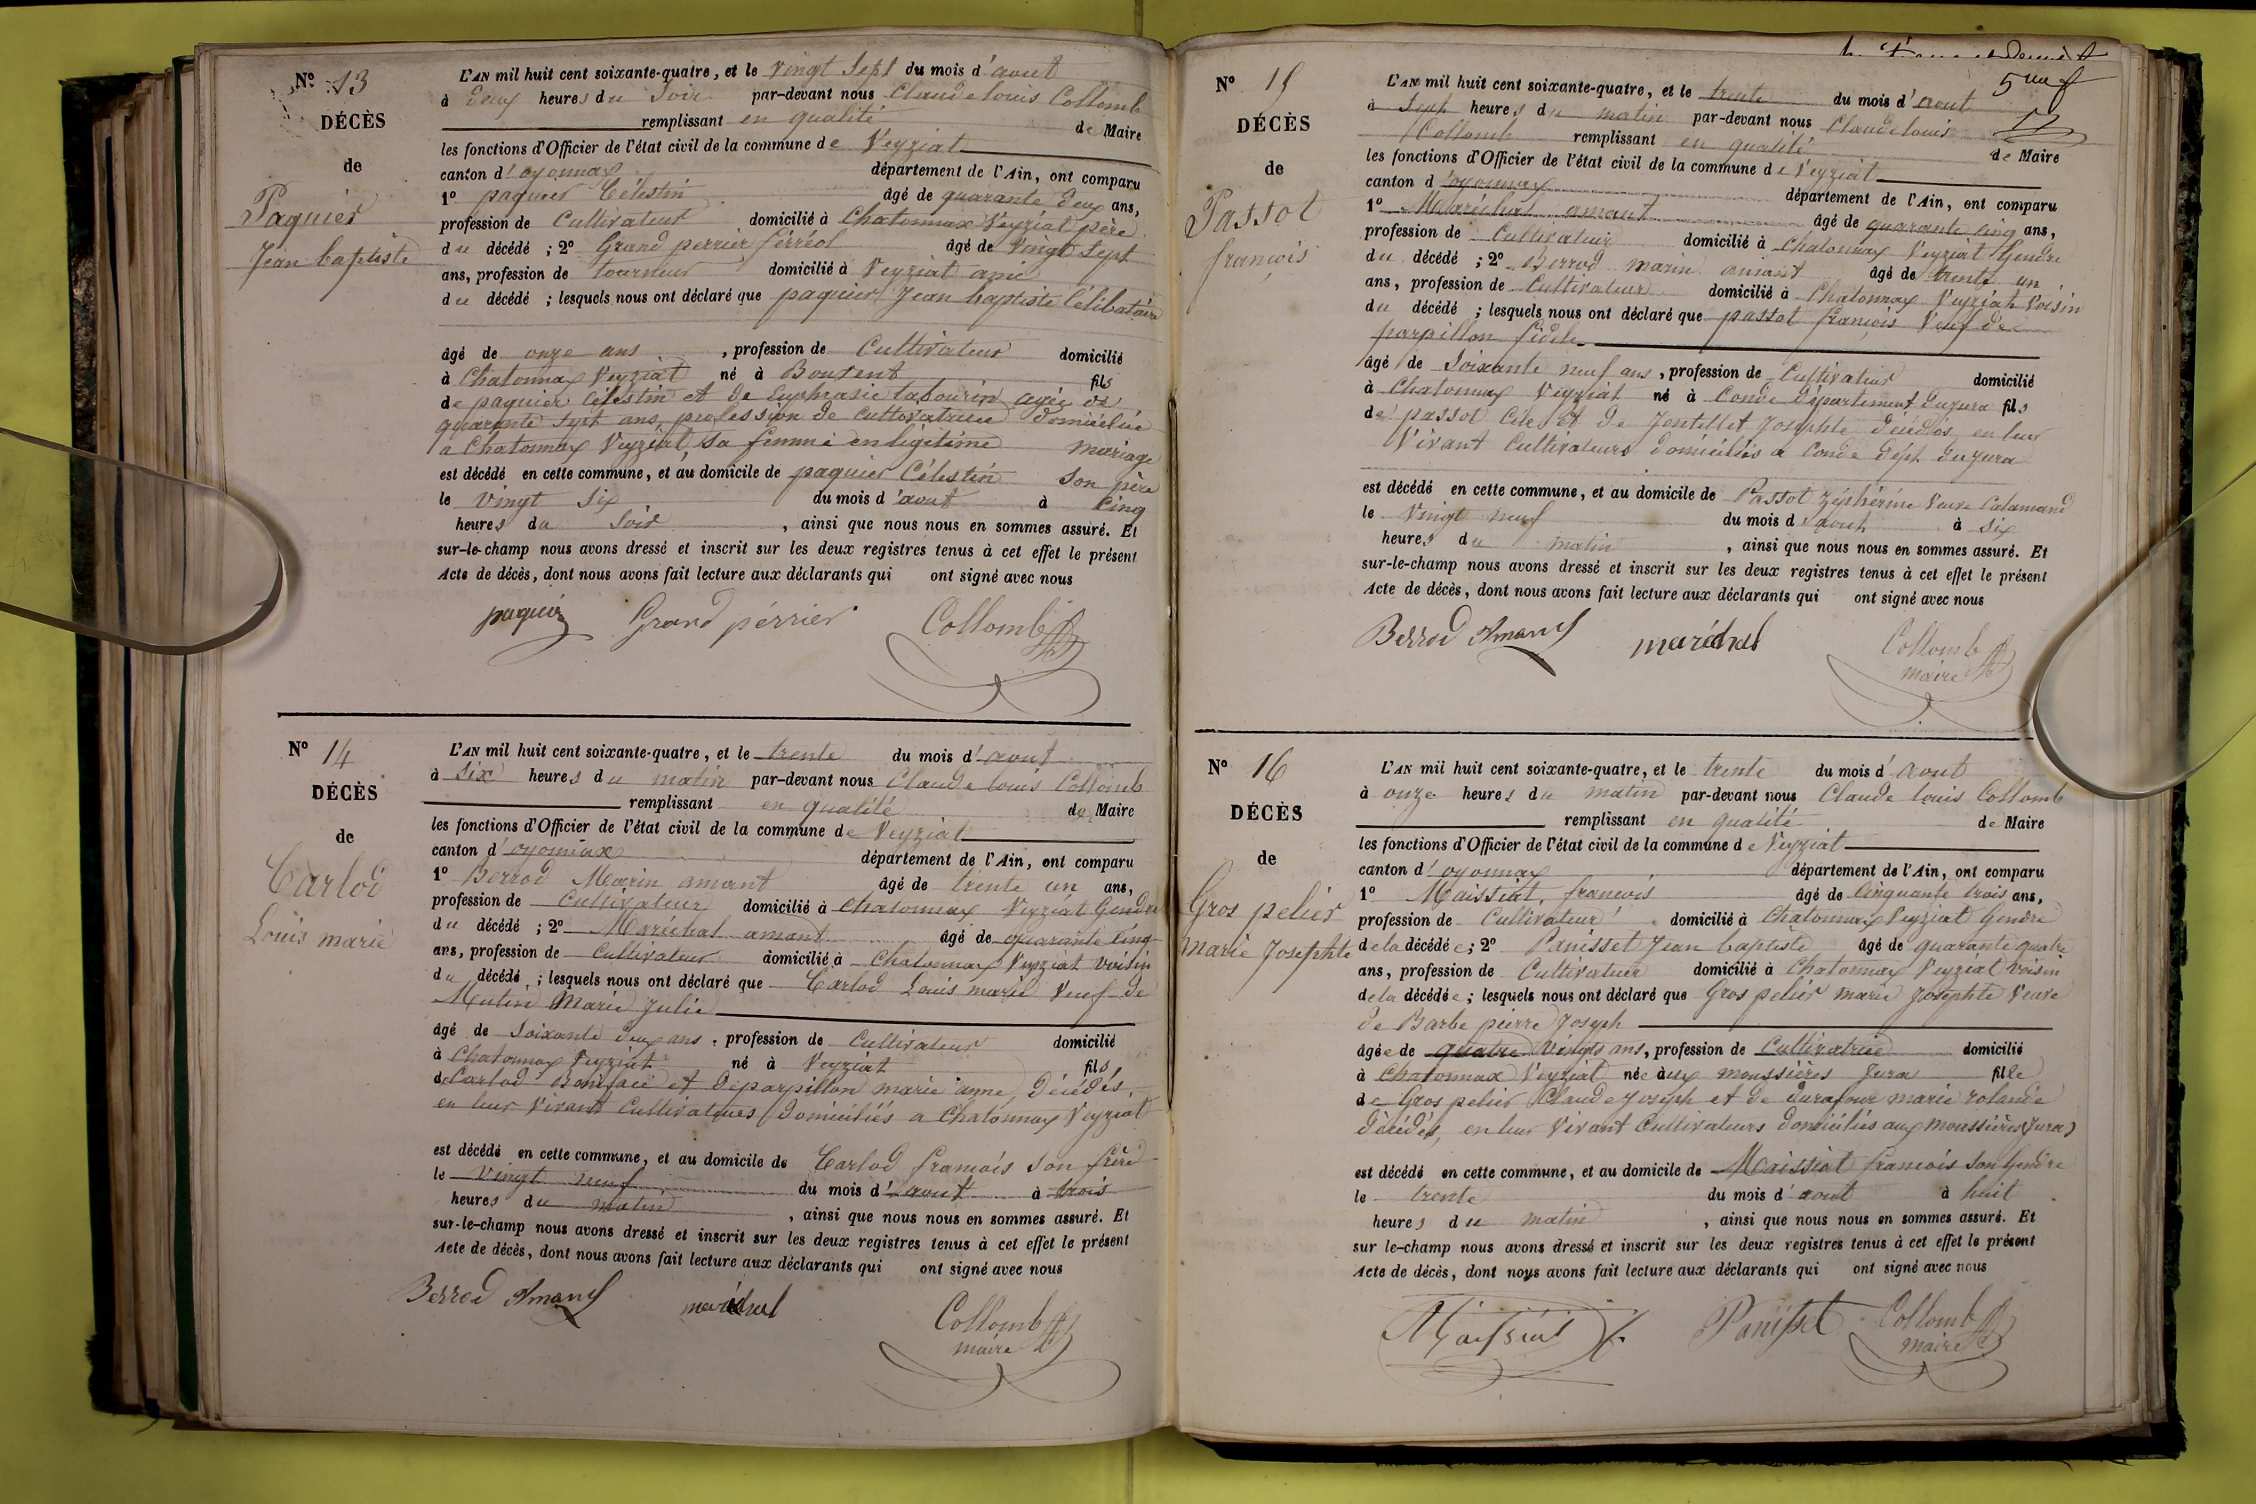 N° 13
DÉCÈS
de
Paquier
Jean baptiste
L'AN mil huit cent soixante-quatre, et le vingt Sept du mois d'aout
à deux heures du Soir par-devant nous Claude louis Collomb
remplissant en qualité de Maire
les fonctions d'Officier de l'état civil de la commune de Veyziat
canton d'oyonnax département de l'Ain, ont comparu
1° paquier Célestin âgé de quarante deux ans,
profession de Cultivateur domicilié à Chatonnax Veyziat père
du décédé ; 2° Grand perrier férréol âgé de Vingt Sept
ans, profession de tourneur domicilié à Veyziat ami
du décédé ; lesquels nous ont déclaré que paquier Jean baptiste Célibataire
âgé de onze ans , profession de Cultivateur domicilié
à Chatonnax Veyziat né à Bouvent fils
de paquier Célestin et de Euphrasie tabourin agée de
quarante Sept ans, profession de Cultivatrice domiciliée
a Chatonnax Veyziat, Sa femme en légitime mariage
est décédé en cette commune, et au domicile de paquier Célestin Son père
le Vingt Six du mois d'aout à Cinq
heures du Soir , ainsi que nous nous en sommes assuré. Et
sur-le-champ nous avons dressé et inscrit sur les deux registres tenus à cet effet le présent
Acte de décès, dont nous avons fait lecture aux déclarants qui ont signé avec nous
paquier Grand périer Collomb
N° 14
DÉCÈS
de
Carlod
Louis marie
L'AN mil huit cent soixante-quatre, et le trente du mois d'aout
à Six heures du matin par-devant nous Claude louis Collomb
remplissant en qualité de Maire
les fonctions d'Officier de l'état civil de la commune de Veyziat
canton d'oyonnax département de l'Ain, ont comparu
1° Berrod Marin amant âgé de trente un ans,
profession de Cultivateur domicilié à Chatonnax Veyziat Gendre
du décédé ; 2° Maréchal amant âgé de quarante Cinq
ans, profession de Cultivateur domicilié à Chatonnax Veyziat Voisin
du décédé ; lesquels nous ont déclaré que Carlod Louis marie Veuf de
Mutin Marie Julie
âgé de Soixante deux ans , profession de Cultivateur domicilié
à Chatonnax Veyziat né à Veyziat fils
de Carlod Boniface et de parpillon marie anne, décédés,
en leur Vivant Cultivateurs domiciliés a Chatonnax Veyziat
est décédé en cette commune, et au domicile de Carlod francois Son frère
le Vingt neuf du mois d'aout à trois
heures du matin , ainsi que nous nous en sommes assuré. Et
sur-le-champ nous avons dressé et inscrit sur les deux registres tenus à cet effet le présent
Acte de décès, dont nous avons fait lecture aux déclarants qui ont signé avec nous
Berrod Amant maréchal Collomb
maire
5me f
N° 15
DÉCÈS
de
Passot
françois
L'AN mil huit cent soixante-quatre, et le trente du mois d'aout
à Sept heures du matin par-devant nous Claude louis
Collomb remplissant en qualité de Maire
les fonctions d'Officier de l'état civil de la commune de Veyziat
canton d'oyonnax département de l'Ain, ont comparu
1° Maréchal amant âgé de quarante cinq ans,
profession de Cultivateur domicilié à Chatonnax Veyziat Gendre
du décédé ; 2° Berrod marin amant âgé de trente un
ans, profession de Cultivateur domicilié à Chatonnax Veyziat Voisin
du décédé ; lesquels nous ont déclaré que passot françois Veuf de
parpillon fidele
âgé de Soixante neuf ans , profession de Cultivateur domicilié
à Chatonnax Veyziat né à Conde Département du jura fils
de passot et de Jentillet Josephte décédés en leur
Vivant Cultivateurs domiciliés a Conde Dépt du jura
est décédé en cette commune, et au domicile de Passot zéphérine Veuve Calamand
le Vingt neuf du mois d'aout à Six
heures du matin , ainsi que nous nous en sommes assuré. Et
sur-le-champ nous avons dressé et inscrit sur les deux registres tenus à cet effet le présent
Acte de décès, dont nous avons fait lecture aux déclarants qui ont signé avec nous
Berrod Amant maréchal Collomb
maire
N° 16
DÉCÈS
de
Gros pelier
marie Josephte
L'AN mil huit cent soixante-quatre, et le trente du mois d'aout
à onze heures du matin par-devant nous Claude louis Collomb
remplissant en qualité de Maire
les fonctions d'Officier de l'état civil de la commune de Veyziat
canton d'oyonnax département de l'Ain, ont comparu
1° Maissiat francois âgé de Cinquante trois ans,
profession de Cultivateur domicilié à Chatonnax Veyziat Gendre
de la décédée ; 2° Panisset Jean baptiste âgé de quarante quatre
ans, profession de Cultivateur domicilié à Chatonnax Veyziat Voisin
de la décédée ; lesquels nous ont déclaré que Gros pelier marie Josephte Veuve
de Barbe pierre Joseph
âgée de quatre Vingts ans, profession de Cultivatrice domicilié
à Chatonnax Veyziat née aux moussières Jura fille
de Gros pelier Claude Joseph et de durafour marie rolande
décédés, en leur Vivant Cultivateurs domiciliés aux moussières (Jura)
est décédé en cette commune, et au domicile de Maissiat francois Son Gendre
le trente du mois d'aout à huit
heures du matin , ainsi que nous nous en sommes assuré. Et
sur le-champ nous avons dressé et inscrit sur les deux registres tenus à cet effet le présent
Acte de décès, dont nous avons fait lecture aux déclarants qui ont signé avec nous
Maissiat Panisset Collomb
maire